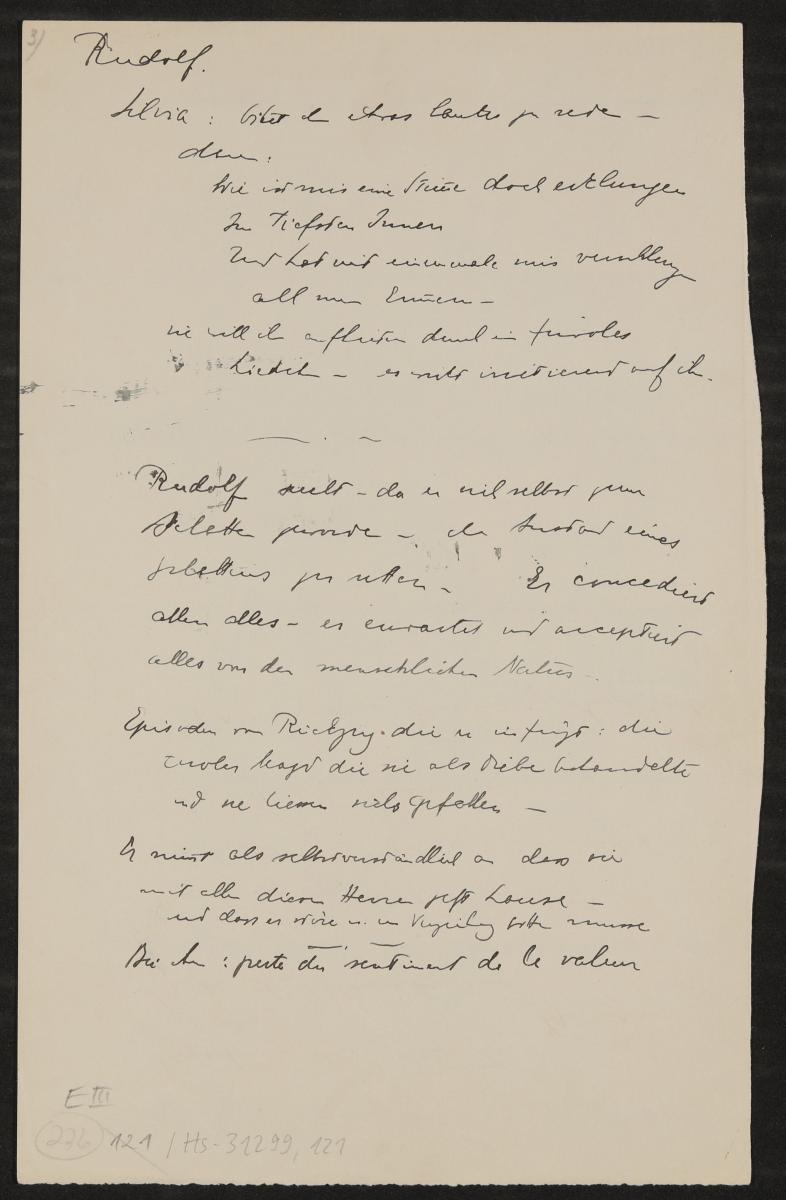 3)
Rudolf.
Silvia: bittet ihn etwas lauter zu reden –
dann:
Wie ist mir eine Stimme doch erklungen
Im tiefsten Innern
Und hat mit einemmale mir verschlungen
all mein Erinnern –
sie will ihn aufheitern durch ein frivoles
Liedchen – es wirkt irritierend auf ihn.
Rudolf sucht – da er sich selbst zum
geworden – den Zustand eines
zu retten – Er concediert
allen alles – er erwartet und acceptiert
alles von der menschlichen Natur –
Episoden von die er einfügt: die
Magd die sie als Diebe behandelte
und sie liessen sichs gefallen –
Er nimmt als selbstverständlich an dass sie
mit allen diesen Herren zu Hause –
und dass er sie um Verzeihung bitten müsse
Bei ihm: perte du sentiment de la valeur
E III
236 121 / Hs-31299, 121